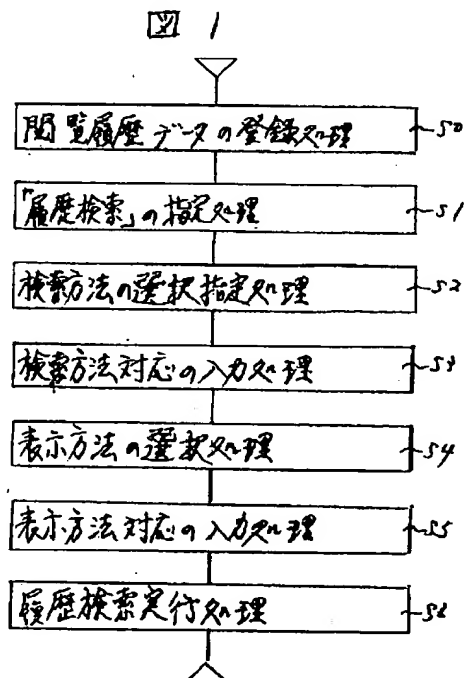 図 1
閲覧履歴データの登録処理 S0
「履歴検索」の指定処理 S1
検索方法の選択指定処理 S2
検索方法対応の入力処理 S3
表示方法の選択処理 S4
表示方法対応の入力処理 S5
履歴検索実行処理 S6